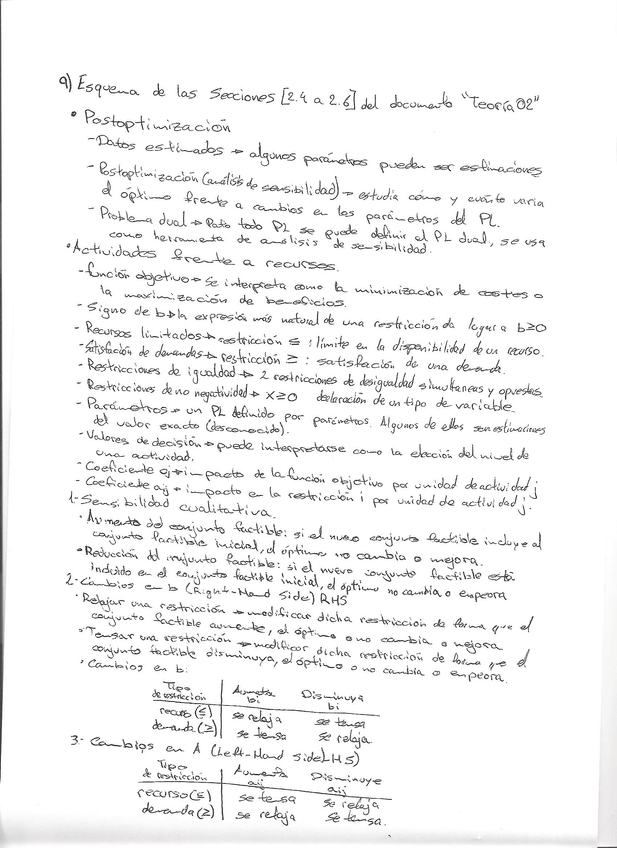 9) Esquema de las Secciones [2.4 a 2.6] del documento "Teoría 02"
• Postoptimización
- Datos estimados → algunos parámetros pueden ser estimaciones
- Postoptimización (análisis de sensibilidad) → estudia cómo y cuánto varia
el óptimo frente a cambios en los parámetros del PL.
- Problema dual → Para todo PL se puede definir el PL dual, se usa
como herramienta de análisis de sensibilidad.
• Actividades frente a recursos.
- función objetivo → Se interpreta como la minimización de costes o
la maximización de beneficios.
- Signo de b → la expresión más natural de una restricción da lugar a b≥0
- Recursos limitados → restricción ≤ : límite en la disponibilidad de un recurso.
- Satisfacción de demandas → restricción ≥ : satisfacción de una demanda.
- Restricciones de igualdad → 2 restricciones de desigualdad simultaneas y opuestas.
- Restricciones de no negatividad → X≥0 declaración de un tipo de variable.
- Parámetros → un PL definido por parámetros. Algunos de ellos son estimaciones
del valor exacto (desconocido).
- Valores de decisión → puede interpretarse como la elección del nivel de
una actividad.
- Coeficiente cj → impacto de la función objetivo por unidad de actividad j
- Coeficiente aij → impacto en la restricción i por unidad de actividad j.
1- Sensibilidad cualitativa.
• Aumento del conjunto factible: si el nuevo conjunto factible incluye al
conjunto factible inicial, el óptimo no cambia o mejora.
• Reducción del conjunto factible: si el nuevo conjunto factible está
incluido en el conjunto factible inicial, el óptimo no cambia o empeora
2- Cambios en b (Right-Hand Side) RHS
• Relajar una restricción → modificar dicha restricción de forma que el
conjunto factible aumente, el óptimo o no cambia o mejora
• Tensar una restricción → modificar dicha restricción de forma que el
conjunto factible disminuya, el óptimo o no cambia o empeora.
• Cambios en b:
Tipo de restricción | Aumenta bi | Disminuya bi
recurso (≤) | se relaja | se tensa
demanda (≥) | se tensa | se relaja
3.- Cambios en A (Left-Hand Side LHS)
Tipo de restricción | Aumenta aij | Disminuye aij
recurso (≤) | se tensa | se relaja
demanda (≥) | se relaja | se tensa.